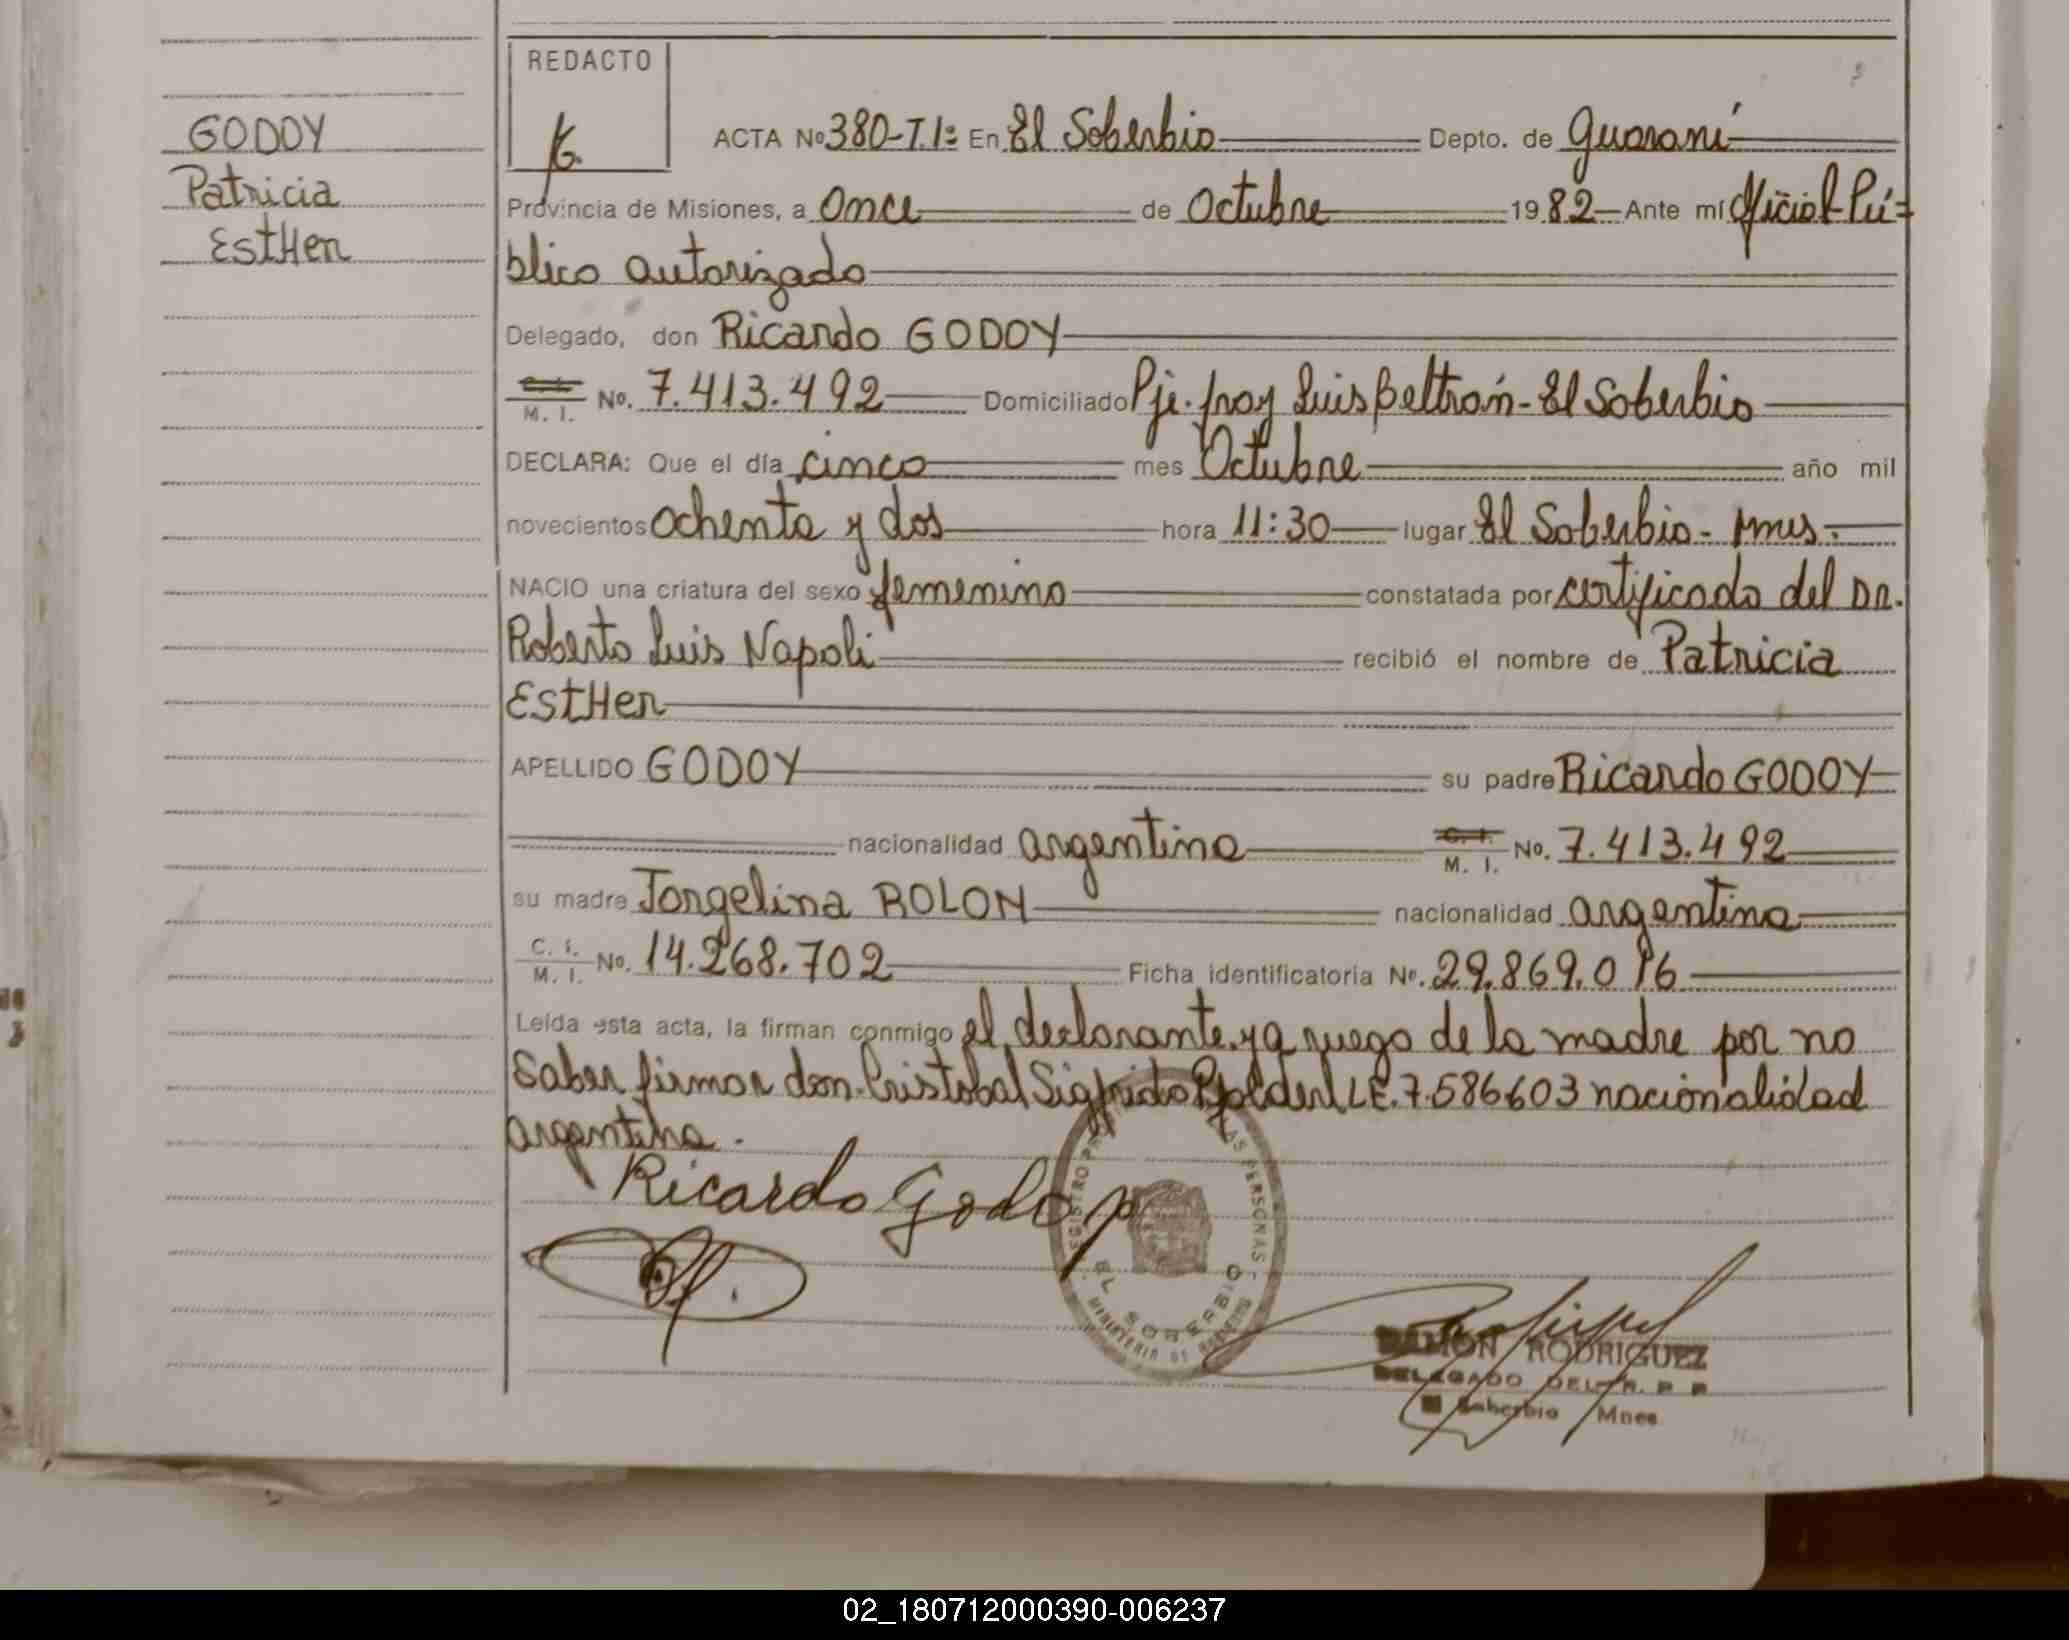 REDACTO
GODOY
Patricia
EstHer
ACTA No 380-T.1º En El Soberbio Depto. de Guaraní
Provincia de Misiones, a Once de Octubre 1982 Ante mí Oficial Pú=
blico autorizado
Delegado, don Ricardo GODOY
C. I.
M. I. No. 7.413.492 Domiciliado Pje. fray Luis Beltrán - El Soberbio
DECLARA: Que el día cinco mes Octubre año mil
novecientos ochenta y dos hora 11:30 lugar El Soberbio - Mnes.
NACIO una criatura del sexo femenino constatada por certificado del DR.
Roberto Luis Napoli recibió el nombre de Patricia
EstHer
APELLIDO GODOY su padre Ricardo GODOY
nacionalidad argentina C. I.
M. I. No. 7.413.492
su madre Jorgelina ROLON nacionalidad argentina
C. I.
M. I. No. 14.268.702 Ficha identificatoria No. 29.869.016
Leída esta acta, la firman conmigo el declarante y a ruego de la madre por no
saber firmar don Cristobal Sigfrido LE. 7.586.603 nacionalidad
argentina.
Ricardo Godoy
EL SOBERBIO
RAMON RODRIGUEZ
DELEGADO DEL R. P. P.
El Soberbio Mnes
02_180712000390-006237